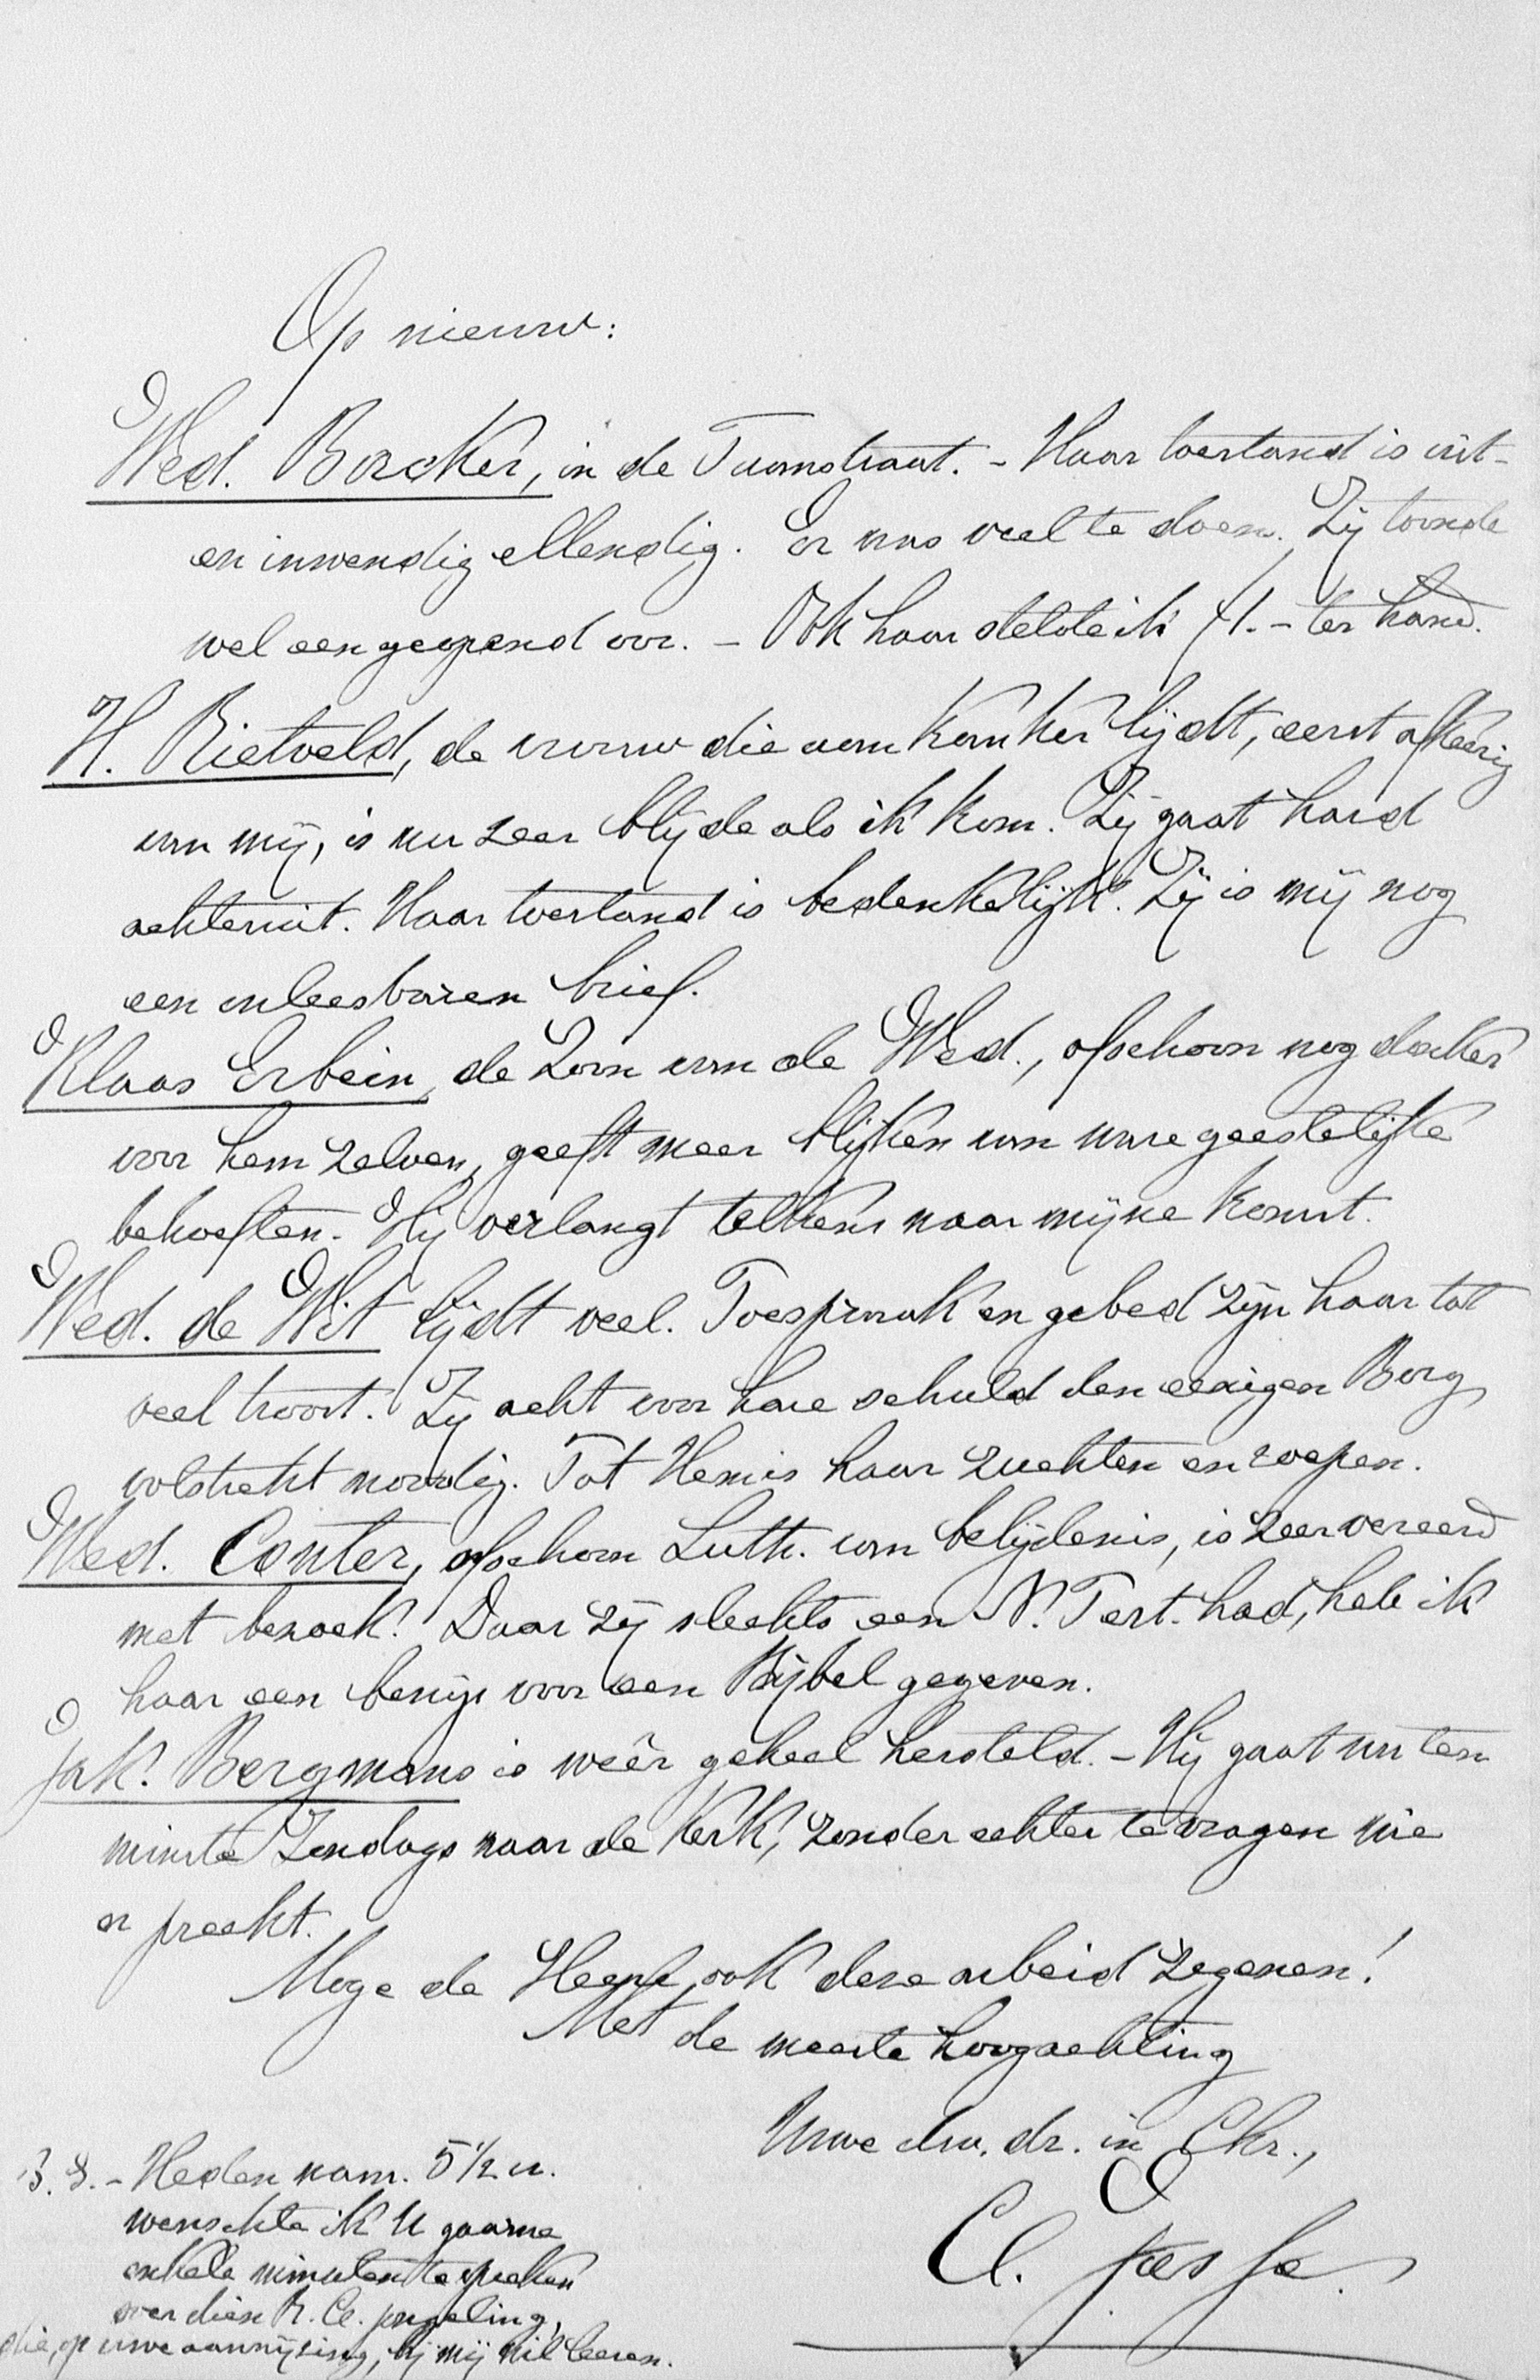 Op nieuw:
Wed. Borcker, in de Tuinstraat. - Haar toestand is uit-
en inwendig ellendig. Er was veel te doen. Zij toonde
wel een geopend oor. - Ook haar stelde ik f 1.- ter hand.
H. Rietveld, de vrouw die aan kanker lijdt, eerst afkeerig
van mij, is nu zeer blijde als ik kom. Zij gaat hard
achteruit. Haar toestand is bedenkelijk. Zij is mij nog
een onleesbaren brief.
Klaas Erbein, de Zoon van de Wed., ofschoon nog donker
voor hem zelven, geeft meer blijken van ware geestelijke
behoeften. Hij verlangt telkens naar mijne komst.
Wed. de Wit lijdt veel. Toespraak en gebed zijn haar tot
veel troost. Zij acht voor hare schuld den eenigen Borg
volstrekt noodig. Tot Hem is haar zuchten en roepen.
Wed. Conter, ofschoon Luth. van belijdenis, is zeer vereerd
met bezoek. Daar zij slechts een N. Test. had, heb ik
haar een bewijs voor een Bijbel gegeven.
Jak. Bergmans is weêr geheel hersteld. - Hij gaat nu ten
minste Zondags naar de Kerk, zonder echter te vragen wie
er preekt.
Moge de Heere ook deze arbeid zegenen!
Met de meeste hoogachting
Uwe dw. dr. in Chr.,
Cl.
P.S. - Heden nam. 5 1/2 u.
wenschte ik U gaarne
enkele minuten te spreken
over dien R. C. jongeling,
die, op uwe aanwijzing, bij mij wil leeren.